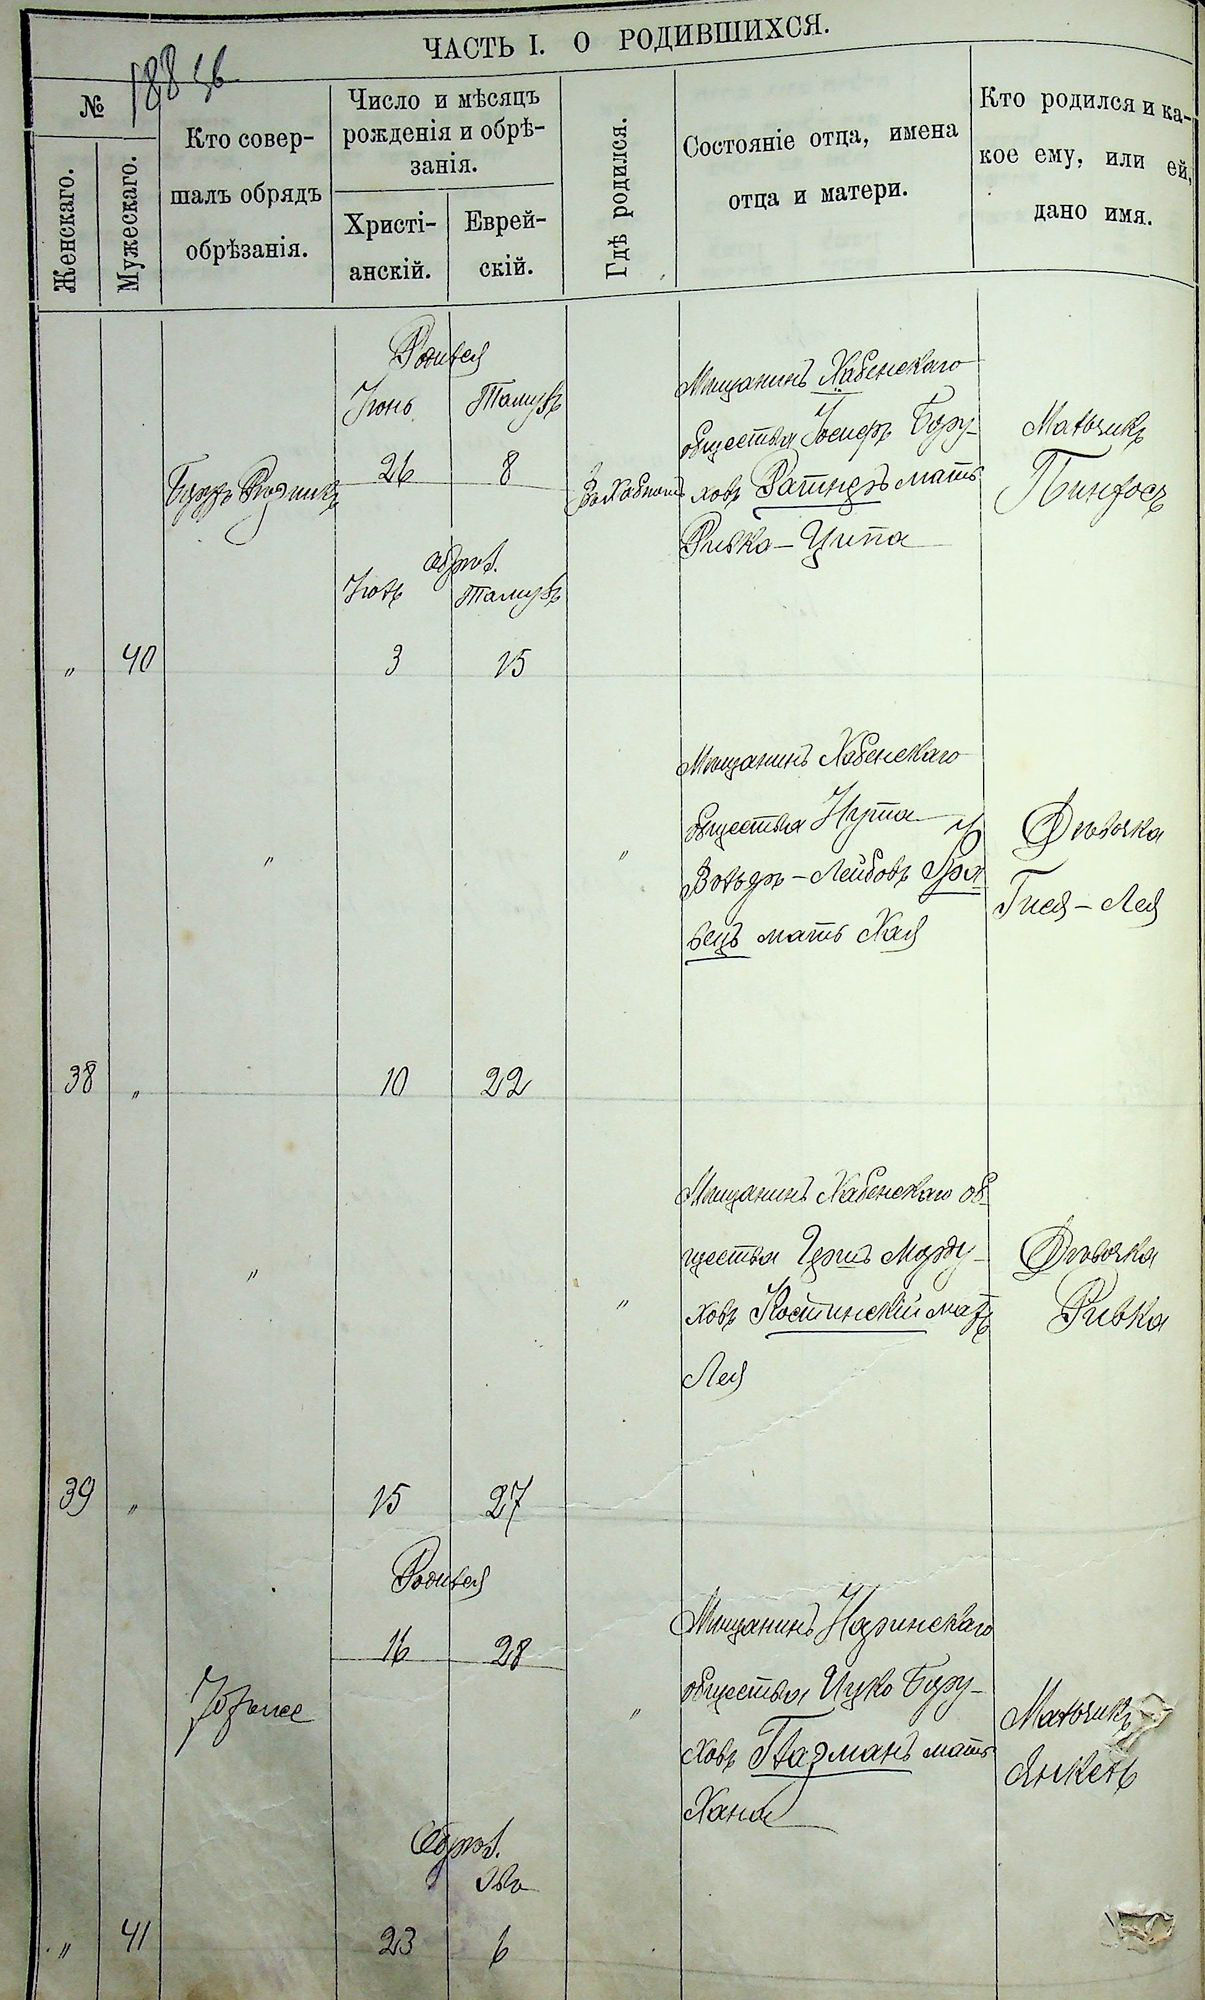 ЧАСТЬ I. О РОДИВШИХСЯ.
№
Женскаго.
Мужескаго.
Кто совер-
шалъ обрядъ
обрѣзанія.
Число и мѣсяцъ
рожденія и обрѣ-
занія.
Христі-
анскій.
Еврей-
скій.
Гдѣ родился.
Состояніе отца, имена
отца и матери.
Кто родился и ка-
кое ему, или ей,
дано имя.
Родился
Іюнь Тамузъ
26 8
обрѣз.
Іюль Тамузъ
" 40 3 15
Мѣщанинъ Хабенскаго
общества Іосифъ Бору-
ховъ мать
Ривка-Ципа
Мальчикъ
Пинхосъ
"
"
Мѣщанинъ Хабенскаго
общества Нута
Вольфъ-Лейбовъ
вецъ мать Хая
Дѣвочка
Гися-Лея
38 " 10 22
"
"
Мѣщанинъ Хабенскаго об-
щества Гершъ Морду-
ховъ Костинскій мать
Лея
Дѣвочка
Ривка
39 " 15 27
Родился
16 28
"
Мѣщанинъ Норинскаго
общества Ицко Бору-
ховъ Глазманъ мать
Хана
Мальчикъ
Янкель
Обрѣз.
Авъ
" 41 23 6